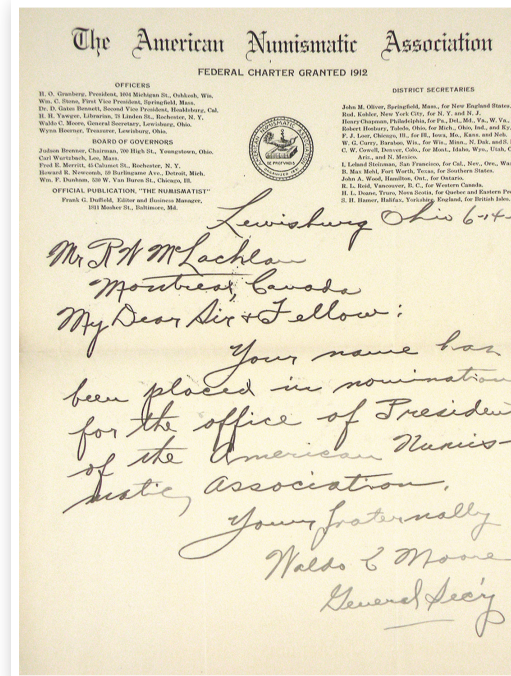 The American Numismatic Association
FEDERAL CHARTER GRANTED 1912
OFFICERS
H. O. Granberg, President, Michigan St., Oshkosh, Wis.
Wm. C. Stone, First Vice President, Springfield, Mass.
Dr. D. Gates Bennet, Second Vice President, Healdsburg, Cal.
H. H. Yawger, Librarian, 78 Linden St., Rochester, N. Y.
Waldo C. Moore, General Secretary, Lewisburg, Ohio.
Wynn Hoerner, Treasurer, Lewisburg, Ohio.
BOARD OF GOVERNORS
Judson Brenner, Chairman, High St., Youngstown, Ohio.
Carl Wurtzbach, Lee, Mass.
Fred E. Merritt, Calumet St., Rochester, N. Y.
Howard R. Newcomb, Burlingame Ave., Detroit, Mich.
Wm. F. Dunham, W. Van Buren St., Chicago, Ill.
OFFICIAL PUBLICATION, "THE NUMISMATIST"
Frank G. Duffield, Editor and Business Manager,
1811 Mosher St., Baltimore, Md.
DISTRICT SECRETARIES
John M. Oliver, Springfield, Mass., for New England States.
Rud. Kohler, New York City, for N. Y. and N. J.
Henry Chapman, Philadelphia, for Pa., Del., Md., Va., W. Va.,
Robert Honbury, Toledo, Ohio, for Mich., Ohio, Ind., and Ky.
F. J. Loer, Chicago, Ill., for Ill., Iowa, Mo., Kans. and Neb.
W. G. Curry, Baraboo, Wis., for Wis., Minn., N. Dak. and S.
C. W. Cowell, Denver, Colo., for Mont., Idaho, Wyo., Utah, C
Ariz., and N. Mexico.
I. Leland Steinman, San Francisco, for Cal., Nev., Ore., Wa
B. Max Mehl, Fort Worth, Texas, for Southern States.
John A. Wood, Hamilton, Ont., for Ontario.
R. L. Reid, Vancouver, B. C., for Western Canada.
H. L. Doane, Truro, Nova Scotia, for Quebec and Eastern Pr
S. H. Hamer, Halifax, Yorkshire, England, for British Isles.
Lewisburg Ohio 6-14-
Mr R W McLachlan
Montreal, Canada
My Dear Sir & Fellow:
Your name has
been placed in nomination
for the office of Presiden
of the American Numis-
matic, Association.
Yours fraternally
Waldo C Moore
General Sec'y